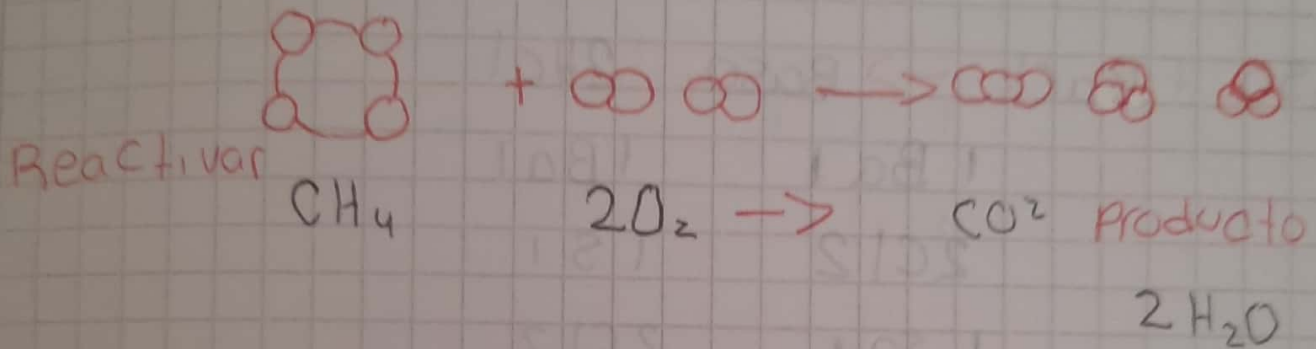 + →
Reactivar
CH₄ 2O₂ → CO² Producto
2H₂O